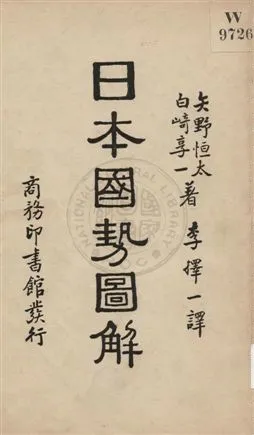 W
9726
矢野恒太
白崎享一 著 李擇一譯
日本國勢圖解
商務印書館發行
NATIONAL CENTRAL LIBRARY